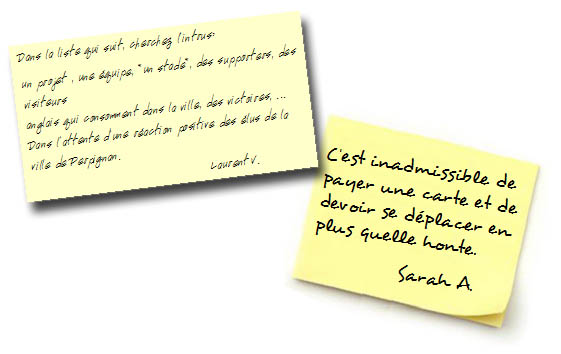 Dans la liste qui suit, cherchez l'intrus:
un projet, une équipe, "un stade", des supporters, des
visiteurs
anglais qui consomment dans la ville, des victoires, ...
Dans l'attente d'une réaction positive des élus de la
ville de Perpignan.
Laurent V.
C'est inadmissible de
payer une carte et de
devoir se déplacer en
plus quelle honte.
Sarah A.